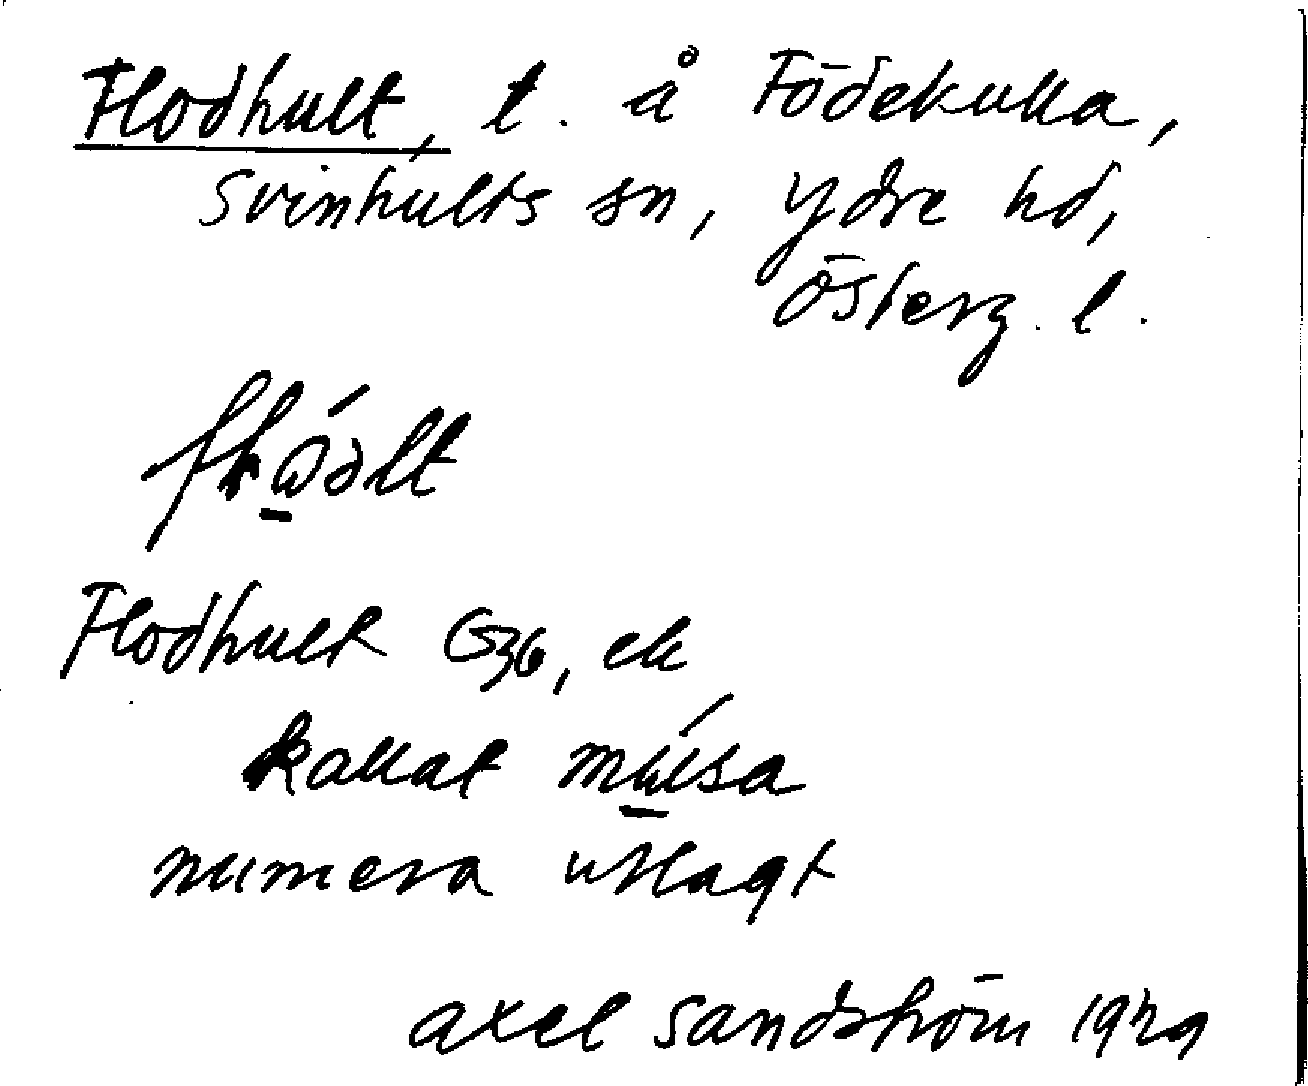 Flodhult, t. å Födekulla,
Svinhults sn, Ydre hd,
Österg. l.
Flodhult G36, ek
kallat músa
numera utlagt
Axel Sandström 1929